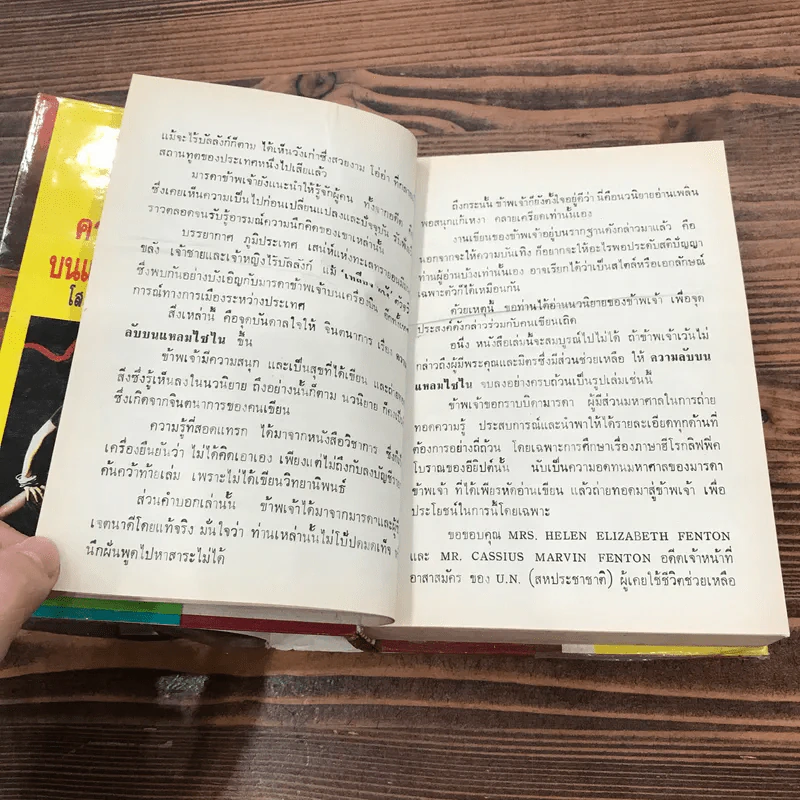 คว
บนแ
โส
แม้จะไร้บัลลังก์ก็ตาม ได้เห็นวังเก่าซึ่งสวยงาม โอ่อ่า ที่กลาย
สถานทูตของประเทศหนึ่งไปเสียแล้ว
มารดาข้าพเจ้ายังแนะนำให้รู้จักผู้คน ทั้งจากอดีต
ซึ่งเคยเห็นความเป็นไปก่อนเปลี่ยนแปลงและปัจจุบัน
ราวตลอดจนรับรู้อารมณ์ความนึกคิดของเขาเหล่านั้น
บรรยากาศ ภูมิประเทศ เสน่ห์แห่งทะเลทราย
ขลัง เจ้าชายและเจ้าหญิงไร้บัลลังก์ แม้
ซึ่งพบกันอย่างบังเอิญกับมารดาข้าพเจ้าบนเครื่องบิน อีกทั้ง
การณ์ทางการเมืองระหว่างประเทศ
สิ่งเหล่านี้ คือจุดบันดาลใจให้ จินตนาการ เรื่อง ความ
ลับบนแหลมไซไน ขึ้น
ข้าพเจ้ามีความสนุก และเป็นสุขที่ได้เขียน และถ่าย
สิ่งซึ่งรู้เห็นลงในนวนิยาย ถึงอย่างนั้นก็ตาม นวนิยาย ก็คง
ซึ่งเกิดจากจินตนาการของคนเขียน
ความรู้ที่สอดแทรก ได้มาจากหนังสือวิชาการ ซึ่ง
เครื่องยืนยันว่า ไม่ได้คิดเอาเอง เพียงแต่ไม่ถึงกับลงบัญชีราย
ค้นคว้าท้ายเล่ม เพราะไม่ได้เขียนวิทยานิพนธ์
ส่วนคำบอกเล่านั้น ข้าพเจ้าได้มาจากมารดาและผู้
เจตนาดีโดยแท้จริง มั่นใจว่า ท่านเหล่านั้นไม่โป้ปดมดเท็จ
นึกฝันพูดไปหาสาระไม่ได้
ถึงกระนั้น ข้าพเจ้าก็ยังตั้งใจอยู่ดีว่า นี่คือนวนิยายอ่านเพลิน
พอสนุกแก้เหงา คลายเครียดเท่านั้นเอง
งานเขียนของข้าพเจ้าอยู่บนรากฐานดังกล่าวมาแล้ว คือ
นอกจากจะให้ความบันเทิง ก็อยากจะให้อะไรพอประดับสติปัญญา
ท่านผู้อ่านบ้างเท่านั้นเอง อาจเรียกได้ว่าเป็นสไตล์หรือเอกลักษณ์
เฉพาะตัวก็ได้เหมือนกัน
ด้วยเหตุนี้ ขอท่านได้อ่านนวนิยายของข้าพเจ้า เพื่อจุด
ประสงค์ดังกล่าวร่วมกับคนเขียนเถิด
อนึ่ง หนังสือเล่มนี้จะสมบูรณ์ไปไม่ได้ ถ้าข้าพเจ้าเว้นไม่
กล่าวถึงผู้มีพระคุณและมิตรซึ่งมีส่วนช่วยเหลือ ให้ ความลับบน
แหลมไซไน จบลงอย่างครบถ้วนเป็นรูปเล่มเช่นนี้
ข้าพเจ้าขอกราบบิดามารดา ผู้มีส่วนมหาศาลในการถ่าย
ทอดความรู้ ประสบการณ์และนำพาให้ได้รายละเอียดทุกด้านที่
ต้องการอย่างถี่ถ้วน โดยเฉพาะการศึกษาเรื่องภาษาฮีโรกลิฟฟิค
โบราณของอียิปต์นั้น นับเป็นความอดทนมหาศาลของมารดา
ข้าพเจ้า ที่ได้เพียรหัดอ่านเขียน แล้วถ่ายทอดมาสู่ข้าพเจ้า เพื่อ
ประโยชน์ในการนี้โดยเฉพาะ
ขอขอบคุณ MRS. HELEN ELIZABETH FENTON
และ MR. CASSIUS MARVIN FENTON อดีตเจ้าหน้าที่
อาสาสมัคร ของ U.N. (สหประชาชาติ) ผู้เคยใช้ชีวิตช่วยเหลือ